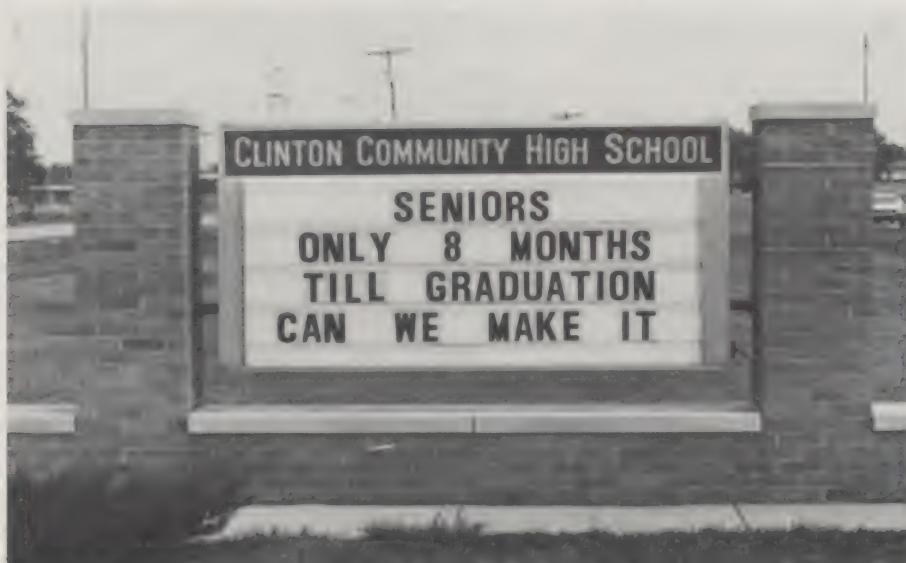 CLINTON COMMUNITY HIGH SCHOOL
SENIORS
ONLY 8 MONTHS
TILL GRADUATION
CAN WE MAKE IT